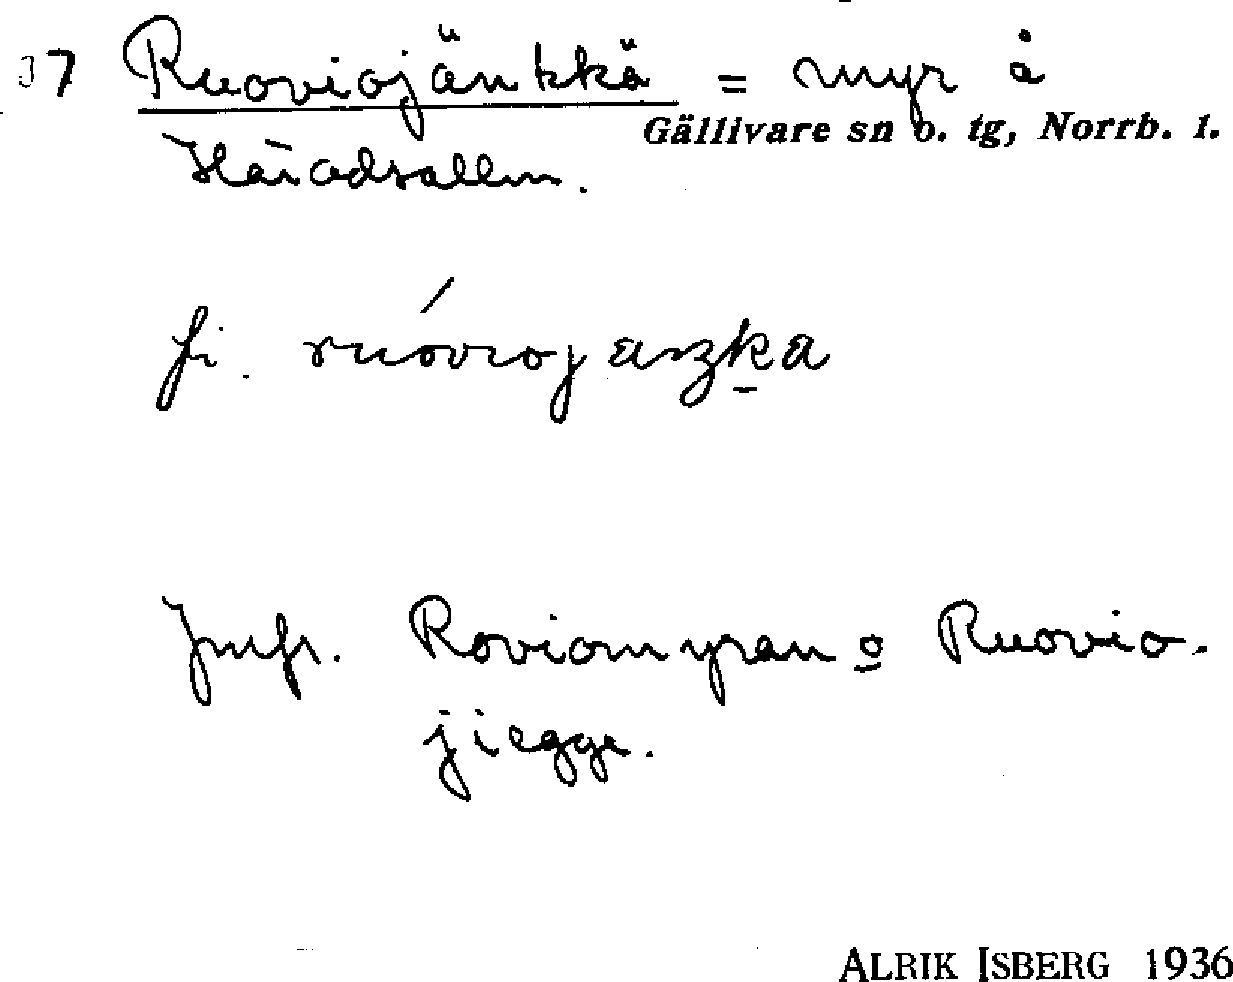 37 Ruoviojänkkä = myr å
Gällivare sn o. tg, Norrb. l.
Häradsallm.
fi. ruóviojäŋkä
Jmfr. Roviomyran o Ruovio-
jiegge.
ALRIK ISBERG 1936